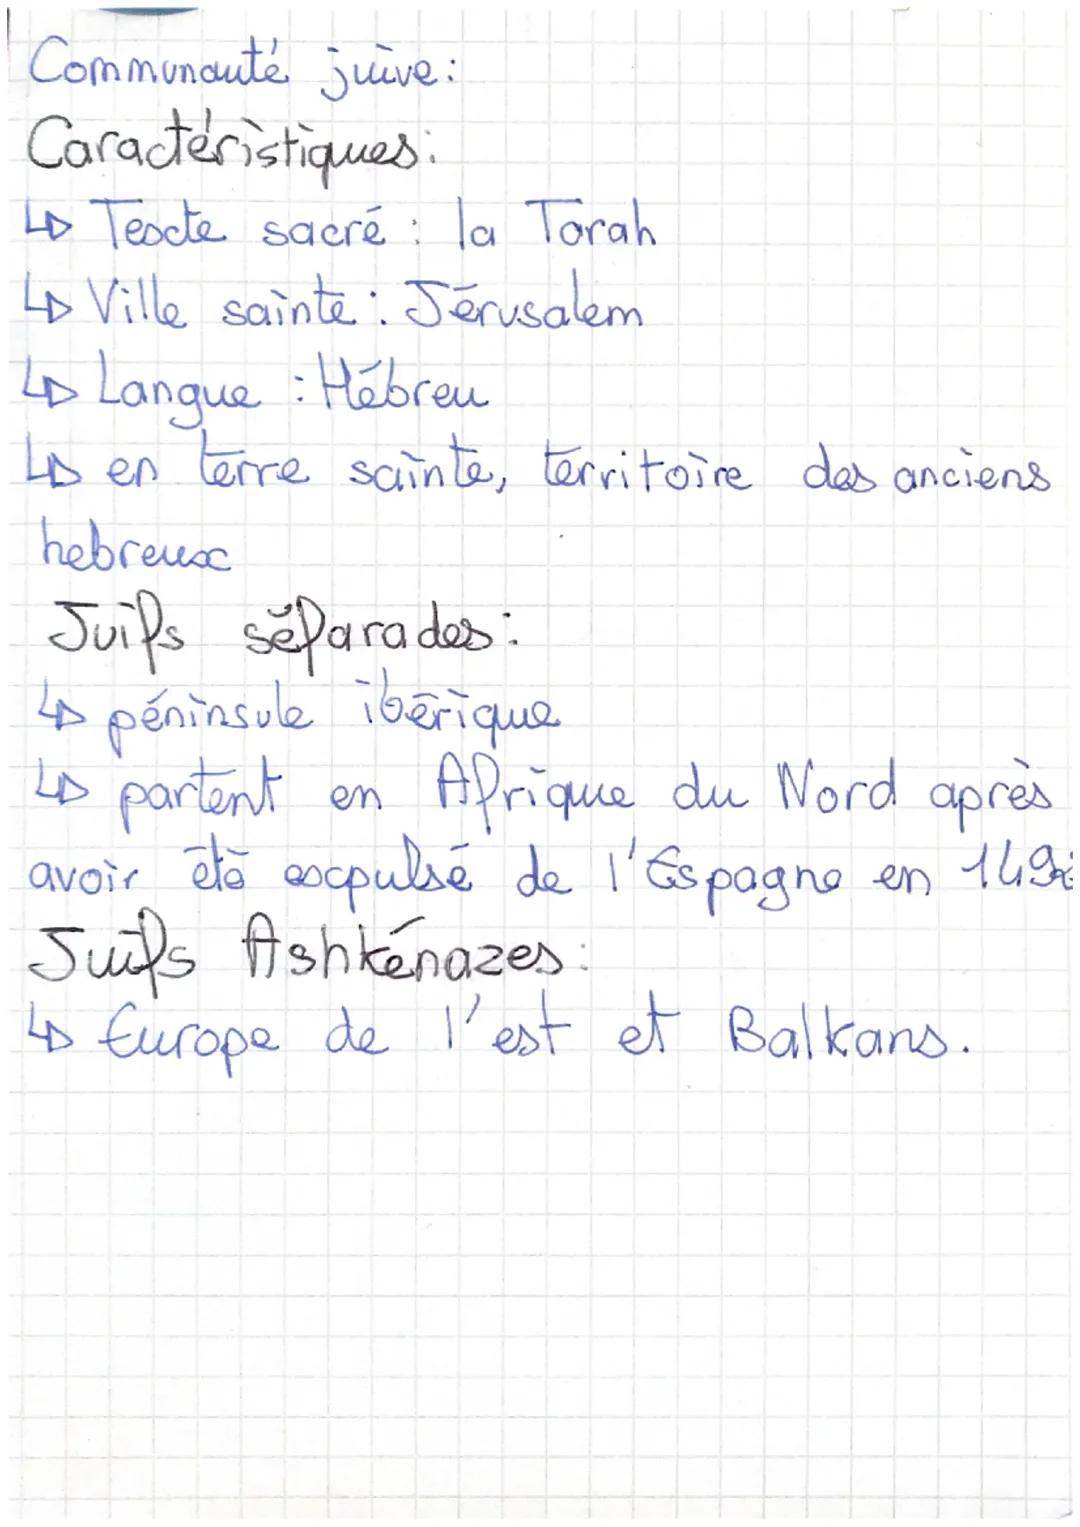 Communauté juive:
Caractéristiques:
↳ Texte sacré : la Torah
↳ Ville sainte : Jérusalem
↳ Langue : Hébreu
↳ en terre sainte, territoire des anciens
hebreux
Juifs séfarades:
↳ péninsule ibérique
↳ partent en Afrique du Nord après
avoir été expulsé de l'Espagne en 1492
Juifs Ashkénazes:
↳ Europe de l'est et Balkans.